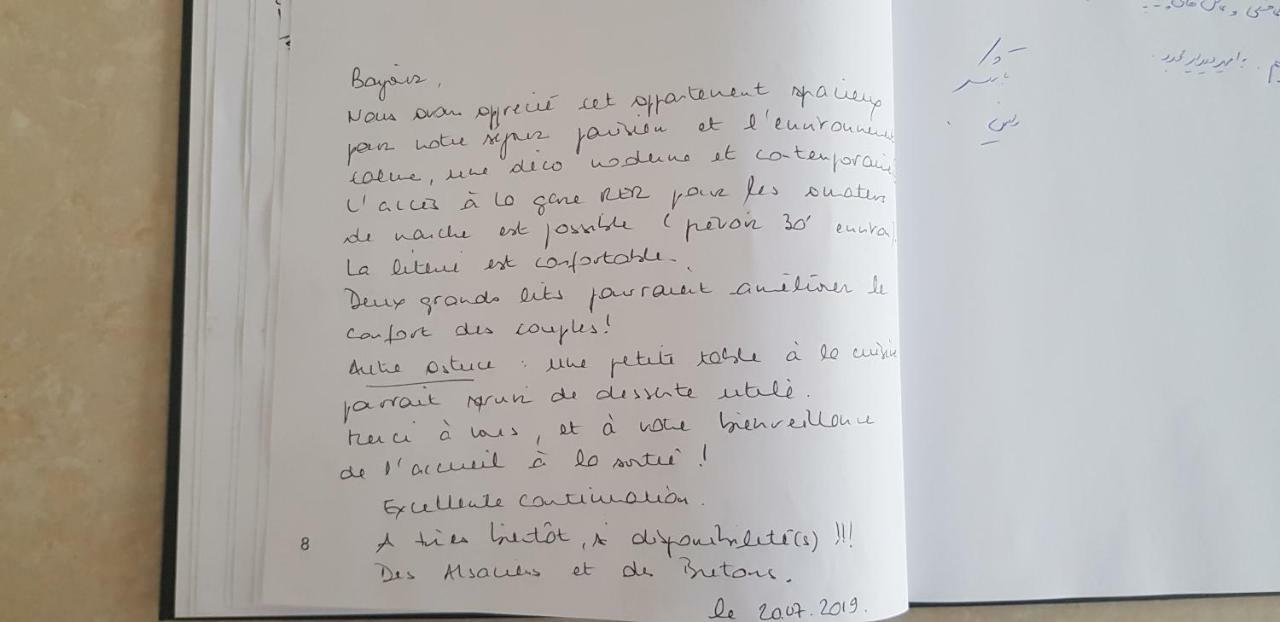 Bonjour,
Nous avons apprécié cet appartement spacieux
pour notre séjour parisien et l'environnement
calme, une déco moderne et contemporaine
L'accès à la gare RER pour les amateurs
de marche est possible (prévoir 30' environ).
La literie est confortable.
Deux grands lits pourraient améliorer le
confort des couples!
Autre astuce : une petite table à la cuisine
pourrait servir de desserte utile.
Merci à vous, et à votre bienveillance
de l'accueil à la sortie !
Excellente continuation.
8
A très bientôt, disponibilité(s) !!!
Des Alsaciens et des Bretons.
le 20.07.2019.